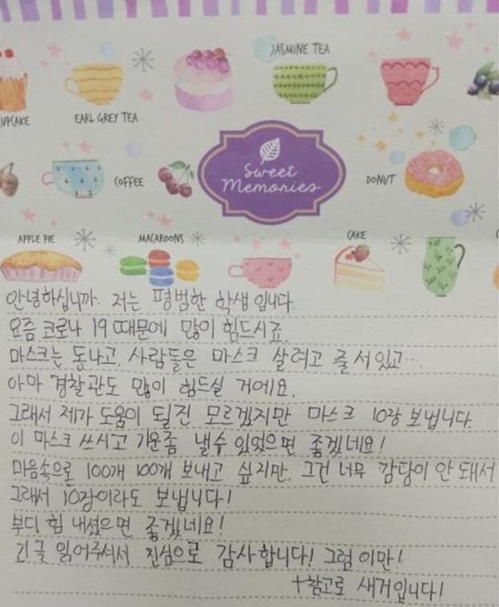 JASMINE TEA
CUPCAKE
EARL GREY TEA
COFFEE
Sweet
Memories
DONUT
APPLE PIE
MACAROONS
CAKE
안녕하십니까. 저는 평범한 학생 입니다.
요즘 코로나 19 때문에 많이 힘드시죠.
마스크는 동나고, 사람들은 마스크 살려고 줄 서있고…
아마 경찰관도 많이 힘드실 거에요.
그래서 제가 도움이 될진 모르겠지만 마스크 10장 보냅니다.
이 마스크 쓰시고 기운좀 낼수 있었으면 좋겠네요!
마음속으론 100개 100개 보내고 싶지만, 그건 너무 감당이 안 돼서
그래서 10장이라도 보냅니다!
부디 힘 내셨으면 좋겠네요!
긴글 읽어주셔서 진심으로 감사합니다! 그럼 이만!
+참고로 새거입니다!